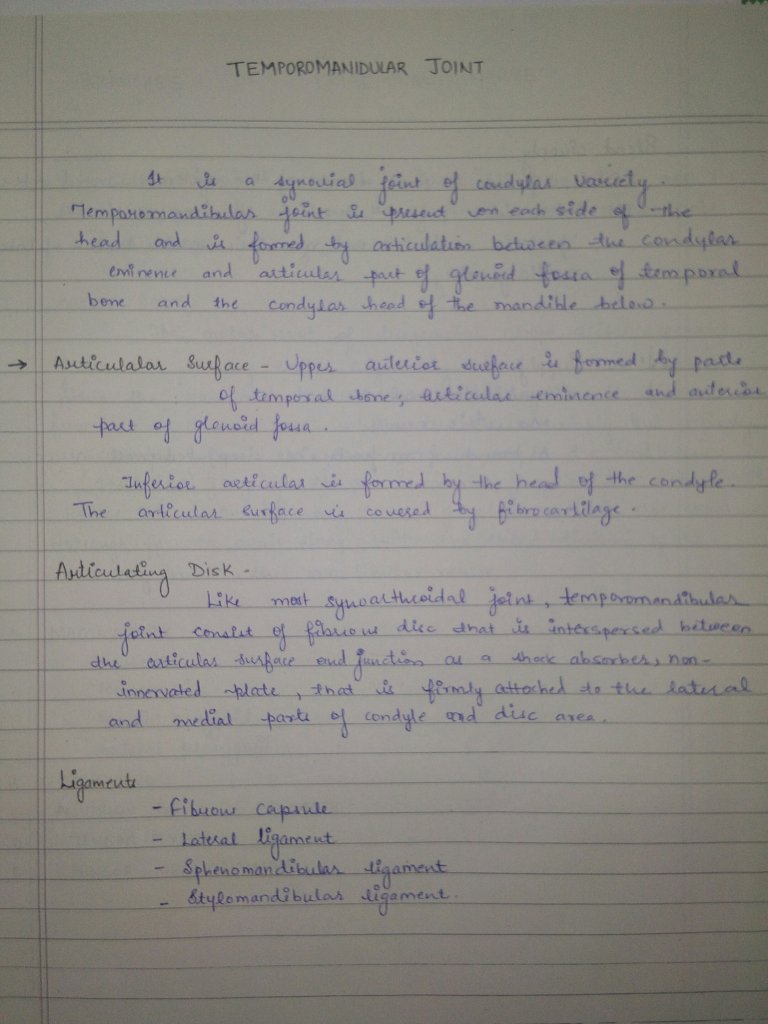 TEMPOROMANIDULAR JOINT
It is a synovial joint of condylar variety.
Temporomandibular joint is present on each side of the
head and is formed by articulation between the condylar
eminence and articular part of glenoid fossa of temporal
bone and the condylar head of the mandible below.
→ Articulalar Surface - Upper anterior surface is formed by parts
of temporal bone; articular eminence and anterior
part of glenoid fossa.
Inferior articular is formed by the head of the condyle.
The articular surface is covered by fibrocartilage.
Articulating Disk -
Like most synoarthroidal joint, temporomandibular
joint consist of fibrious disc that is interspersed between
the articular surface and junction as a shock absorber, non-
innervated plate, that is firmly attached to the lateral
and medial parts of condyle and disc area.
Ligaments
- Fibrous capsule
- Lateral ligament
- Sphenomandibular ligament
- Stylomandibular ligament.